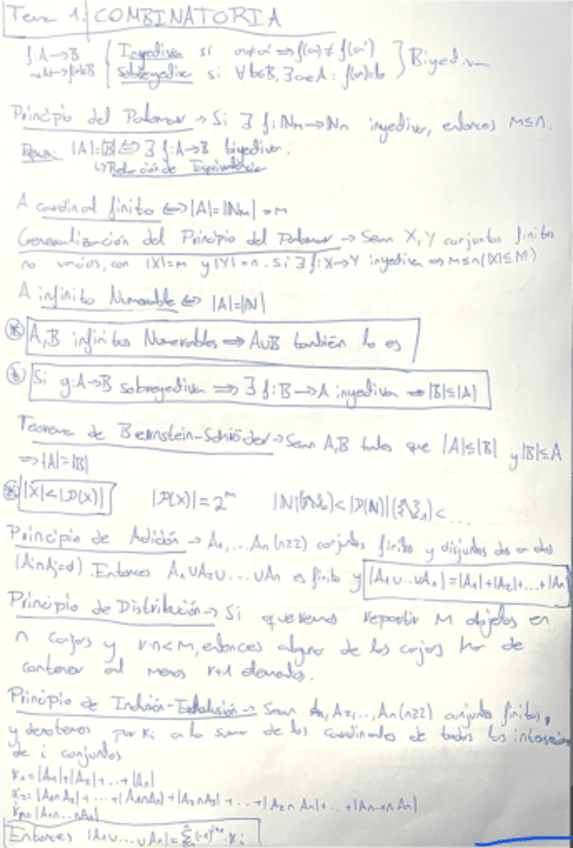 Tema 1: COMBINATORIA
f: A → B { Inyectiva si a≠a' ⇒ f(a) ≠ f(a') } Biyectiva
Sobreyectiva si ∀b∈B, ∃a∈A : f(a)=b
Principio del Palomar → Si ∃ f: Nm → Nn inyectiva, entonces m≤n.
|A|=|B| ⇔ ∃ f: A→B biyectiva.
↳ Relación de Equivalencia
A cardinal finito ⇔ |A|=|Nm| = m
Generalización del Principio del Palomar → Sean X, Y conjuntos finitos
no vacíos, con |X|=m y |Y|=n. Si ∃ f: X→Y inyectiva ⇒ m≤n (|X|≤
A infinito Numerable ⇔ |A|=|N|
A, B infinitos Numerables ⇒ A∪B también lo es
Si g: A→B sobreyectiva ⇒ ∃ f: B→A inyectiva ⇒ |B|≤|A|
Teorema de Bernstein-Schröder → Sean A, B tales que |A|≤|B| y |B|≤A
⇒ |A|=|B|
|X|<|P(X)| |P(X)| = 2^m |N| < |P(N)| < ...
Principio de Adición → A1, ... An (n≥2) conjuntos finitos y disjuntos dos a dos
(Ai∩Aj=∅). Entonces A1∪A2∪...∪An es finito y |A1∪...∪An|=|A1|+|A2|+...+|An|
Principio de Distribución → Si queremos repartir m objetos en
n cajas y r·n<m, entonces alguna de las cajas ha de
contener al menos r+1 elementos.
Principio de Inclusión-Exclusión → Sean A1, A2, ..., An (n≥2) conjuntos finitos,
y denotemos por αi a la suma de los cardinales de todas las
de i conjuntos
α1=|A1|+|A2|+...+|An|
α2=|A1∩A2|+...+|A1∩An|+|A2∩A3|+...+|A2∩An|+...+|An-1∩An|
αn=|A1∩...∩An|
Entonces |A1∪...∪An|=